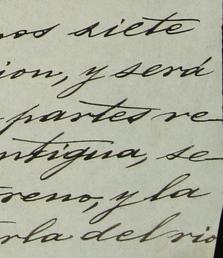 nos siete
ion, y será
partes re
ntigua, se
reno, y la
rla del rio